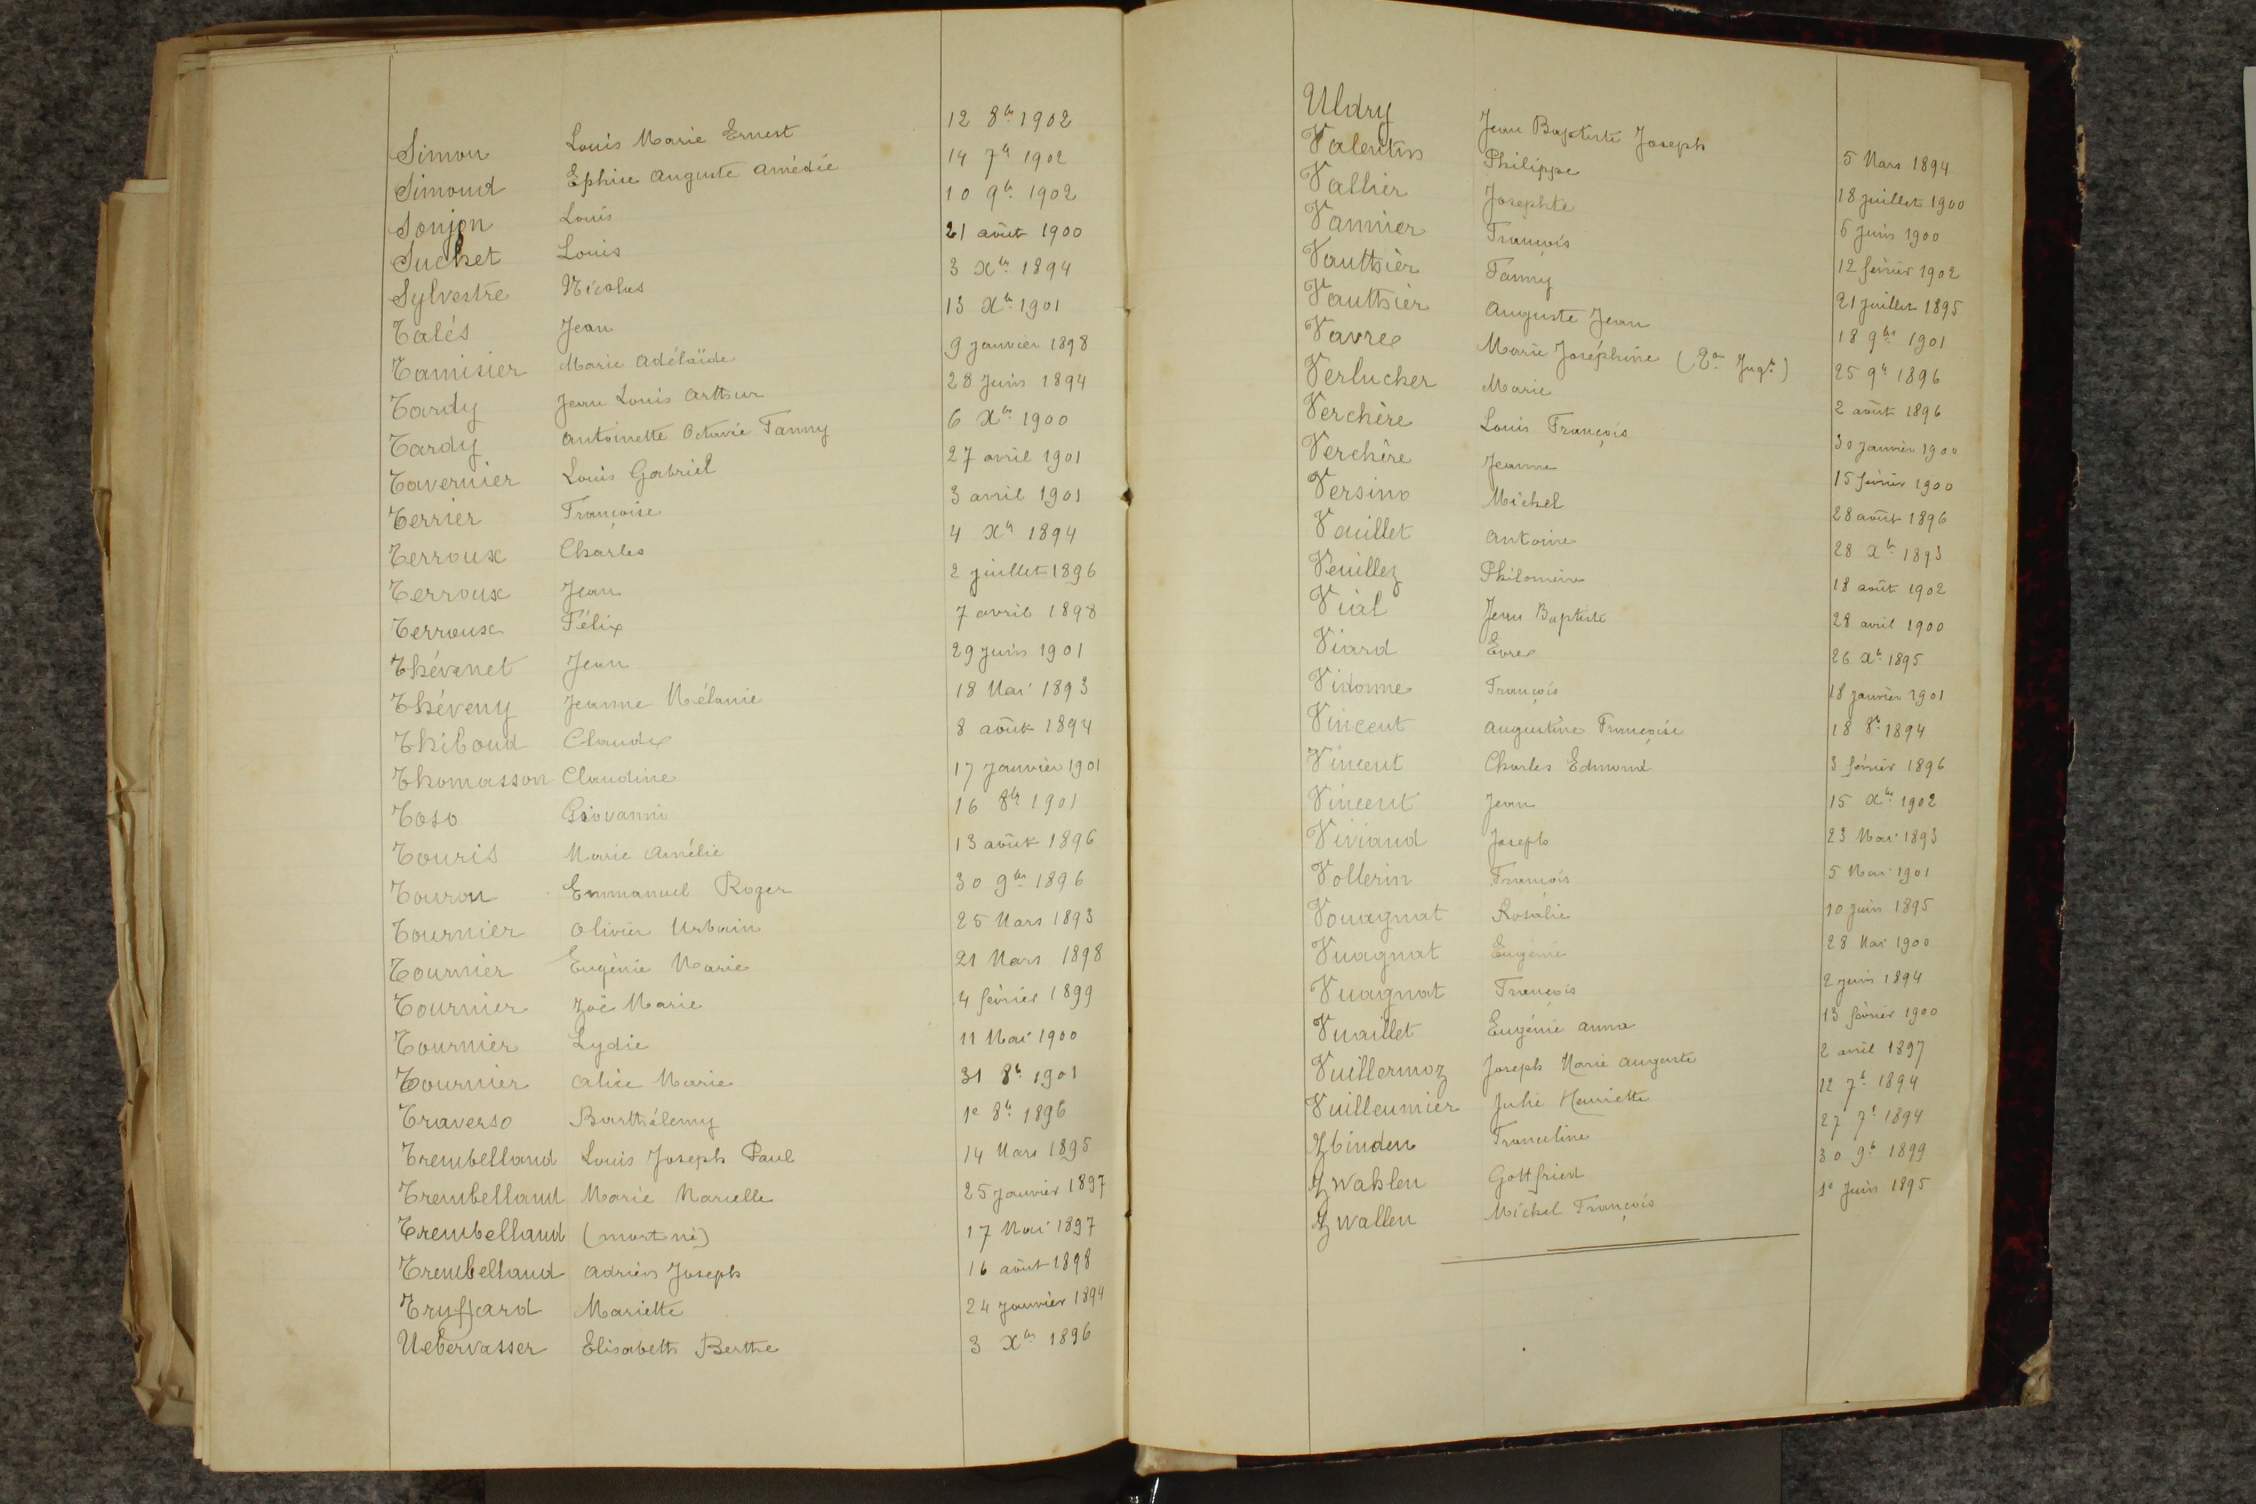 Simon Louis Marie Ernest 12 8bre 1902
Simond Ephise Auguste Amédée 14 7bre 1902
Sonjon Louis 10 9bre 1902
Suchet Louis 21 août 1900
Sylvestre Nicolas 3 Xbre 1894
Talés Jean 13 Xbre 1901
Tamisier Marie Adélaïde 9 janvier 1898
Tardy Jean Louis Arthur 28 Juin 1894
Tardy Antoinette Octavie Fanny 6 Xbre 1900
Tavernier Louis Gabriel 27 avril 1901
Terrier Françoise 3 avril 1901
Terroux Charles 4 Xbre 1894
Terroux Jean 2 juillet 1896
Terroux Félix 7 avril 1898
Thévenet Jean 29 juin 1901
Théveny Jeanne Mélanie 18 Mai 1893
Thiboud Claude 8 août 1894
Thomasson Claudine 17 Janvier 1901
Toso Giovanni 16 8bre 1901
Touris Marie Amélie 13 août 1896
Touron Emmanuel Roger 30 9bre 1896
Tournier Olivier Urbain 25 Mars 1893
Tournier Eugénie Marie 21 Mars 1898
Tournier Zoë Marie 4 février 1899
Tournier Lydie 11 Mai 1900
Tournier Alice Marie 31 8bre 1901
Traverso Barthélemy 1e 8bre 1896
Trembelland Louis Joseph Paul 14 Mars 1895
Trembelland Marie Marcelle 25 Janvier 1897
Trembelland (mort né) 17 Mai 1897
Trembelland Adrien Joseph 16 août 1898
Tryffard Mariette 24 Janvier 1894
Uebervasser Elisabeth Berthe 3 Xbre 1896
Uldry Jean Baptiste Joseph 5 Mars 1894
Valentin Philippe 18 juillet 1900
Vallier Josephte 6 Juin 1900
Vannier François 12 février 1902
Vauthier Fanny 21 juillet 1895
Vauthier Auguste Jean 18 9bre 1901
Vavre Marie Joséphine (Don Jugt) 25 9bre 1896
Verlucher Marie 2 août 1896
Verchère Louis François 30 Janvier 1900
Verchère Jeanne 15 février 1900
Versino Michel 28 août 1896
Vauillet Antoine 28 Xbre 1893
Veuillez Philomène 18 août 1902
Vial Jean Baptiste 28 avril 1900
Viard Evre 26 Xbre 1895
Vidonne François 18 janvier 1901
Vincent Augustine Françoise 18 8bre 1894
Vincent Charles Edmond 3 février 1896
Vincent Jean 15 Xbre 1902
Viviand Joseph 23 Mai 1893
Vollerin François 5 Mai 1901
Vouagnat Rosalie 10 juin 1895
Vuagnat Eugénie 28 Mai 1900
Vuagnat François 2 juin 1894
Vuaillet Eugénie Anna 13 février 1900
Vuillermoz Joseph Marie Auguste 2 avril 1897
Vuilleumier Julie Henriette 12 7bre 1894
Zbinden Françoline 27 7bre 1894
Zwahlen Gottfried 30 9bre 1899
Zwallen Michel François 1e Juin 1895